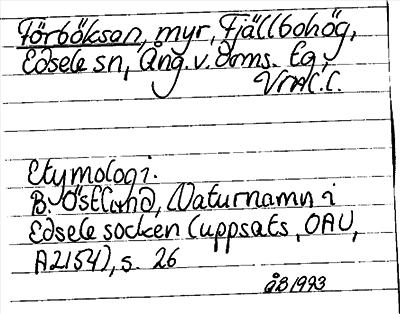 Förböksan, myr, Fjällbohög,
Edsele sn, Ång. v. doms. Eg,
Etymologi.
B. Östlund, Naturnamn i
Edsele socken (uppsats, OAU,
A2154), s. 26
ÅB 1993